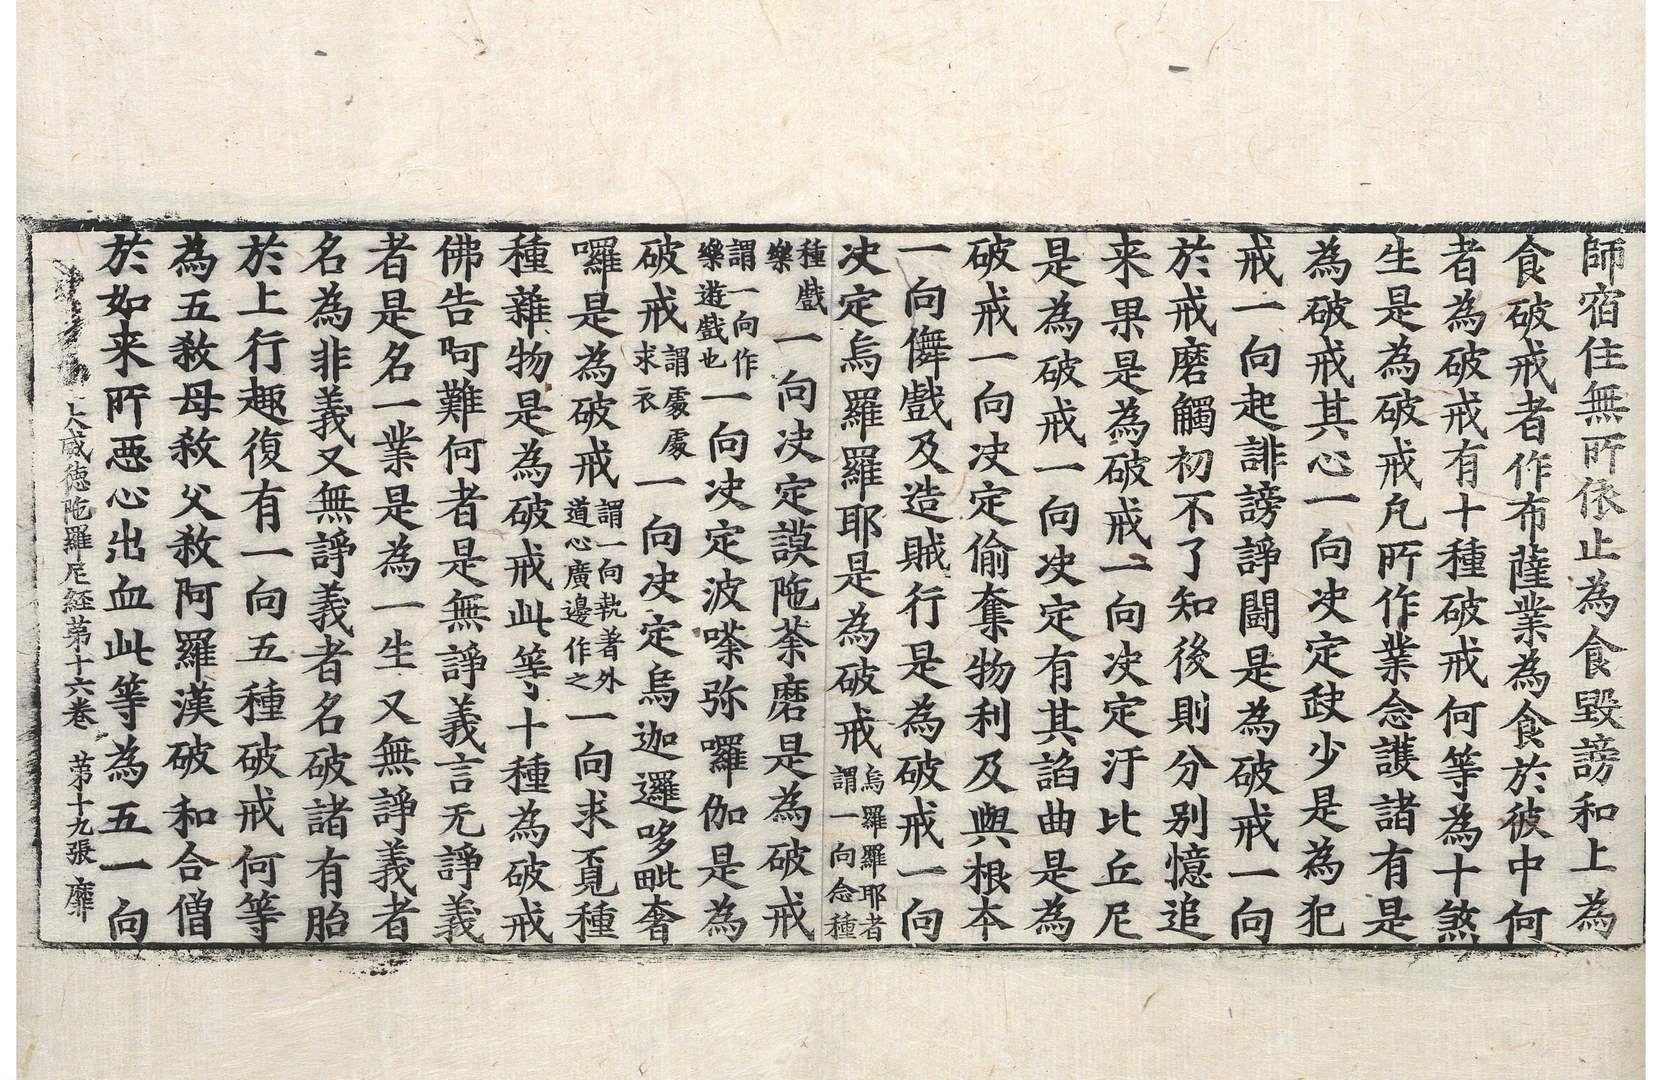 師宿住無所依止為食毀謗和上為
食破戒者作布薩業為食於彼中何
者為破戒有十種破戒何等為十煞
生是為破戒凢所作業念護諸有是
為破戒其心一向决定缺少是為犯
戒一向起誹謗諍鬪是為破戒一向
於戒磨觸初不了知後則分别憶追
来果是為破戒一向决定汙比丘尼
是為破戒一向决定有其諂曲是為
破戒一向决定偷奪物利及與根本
一向儛戲及造賊行是為破戒一向
决定烏羅羅耶是為破戒烏羅羅耶者謂一向念種
種戲樂一向决定謨陁荼磨是為破戒
謂一向作樂遊戲也一向决定波嗏弥囉伽是為
破戒謂處處求衣一向决定烏迦邏哆毗奢
囉是為破戒謂一向執著外道心廣邊作之一向求覔種
種雜物是為破戒此等十種為破戒
佛告阿難何者是無諍義言无諍義
者是名一業是為一生又無諍義者
名為非義又無諍義者名破諸有胎
於上行趣復有一向五種破戒何等
為五煞母煞父煞阿羅漢破和合僧
於如来所惡心出血此等為五一向
大威德陁羅尼経第十六卷 第十九張 靡